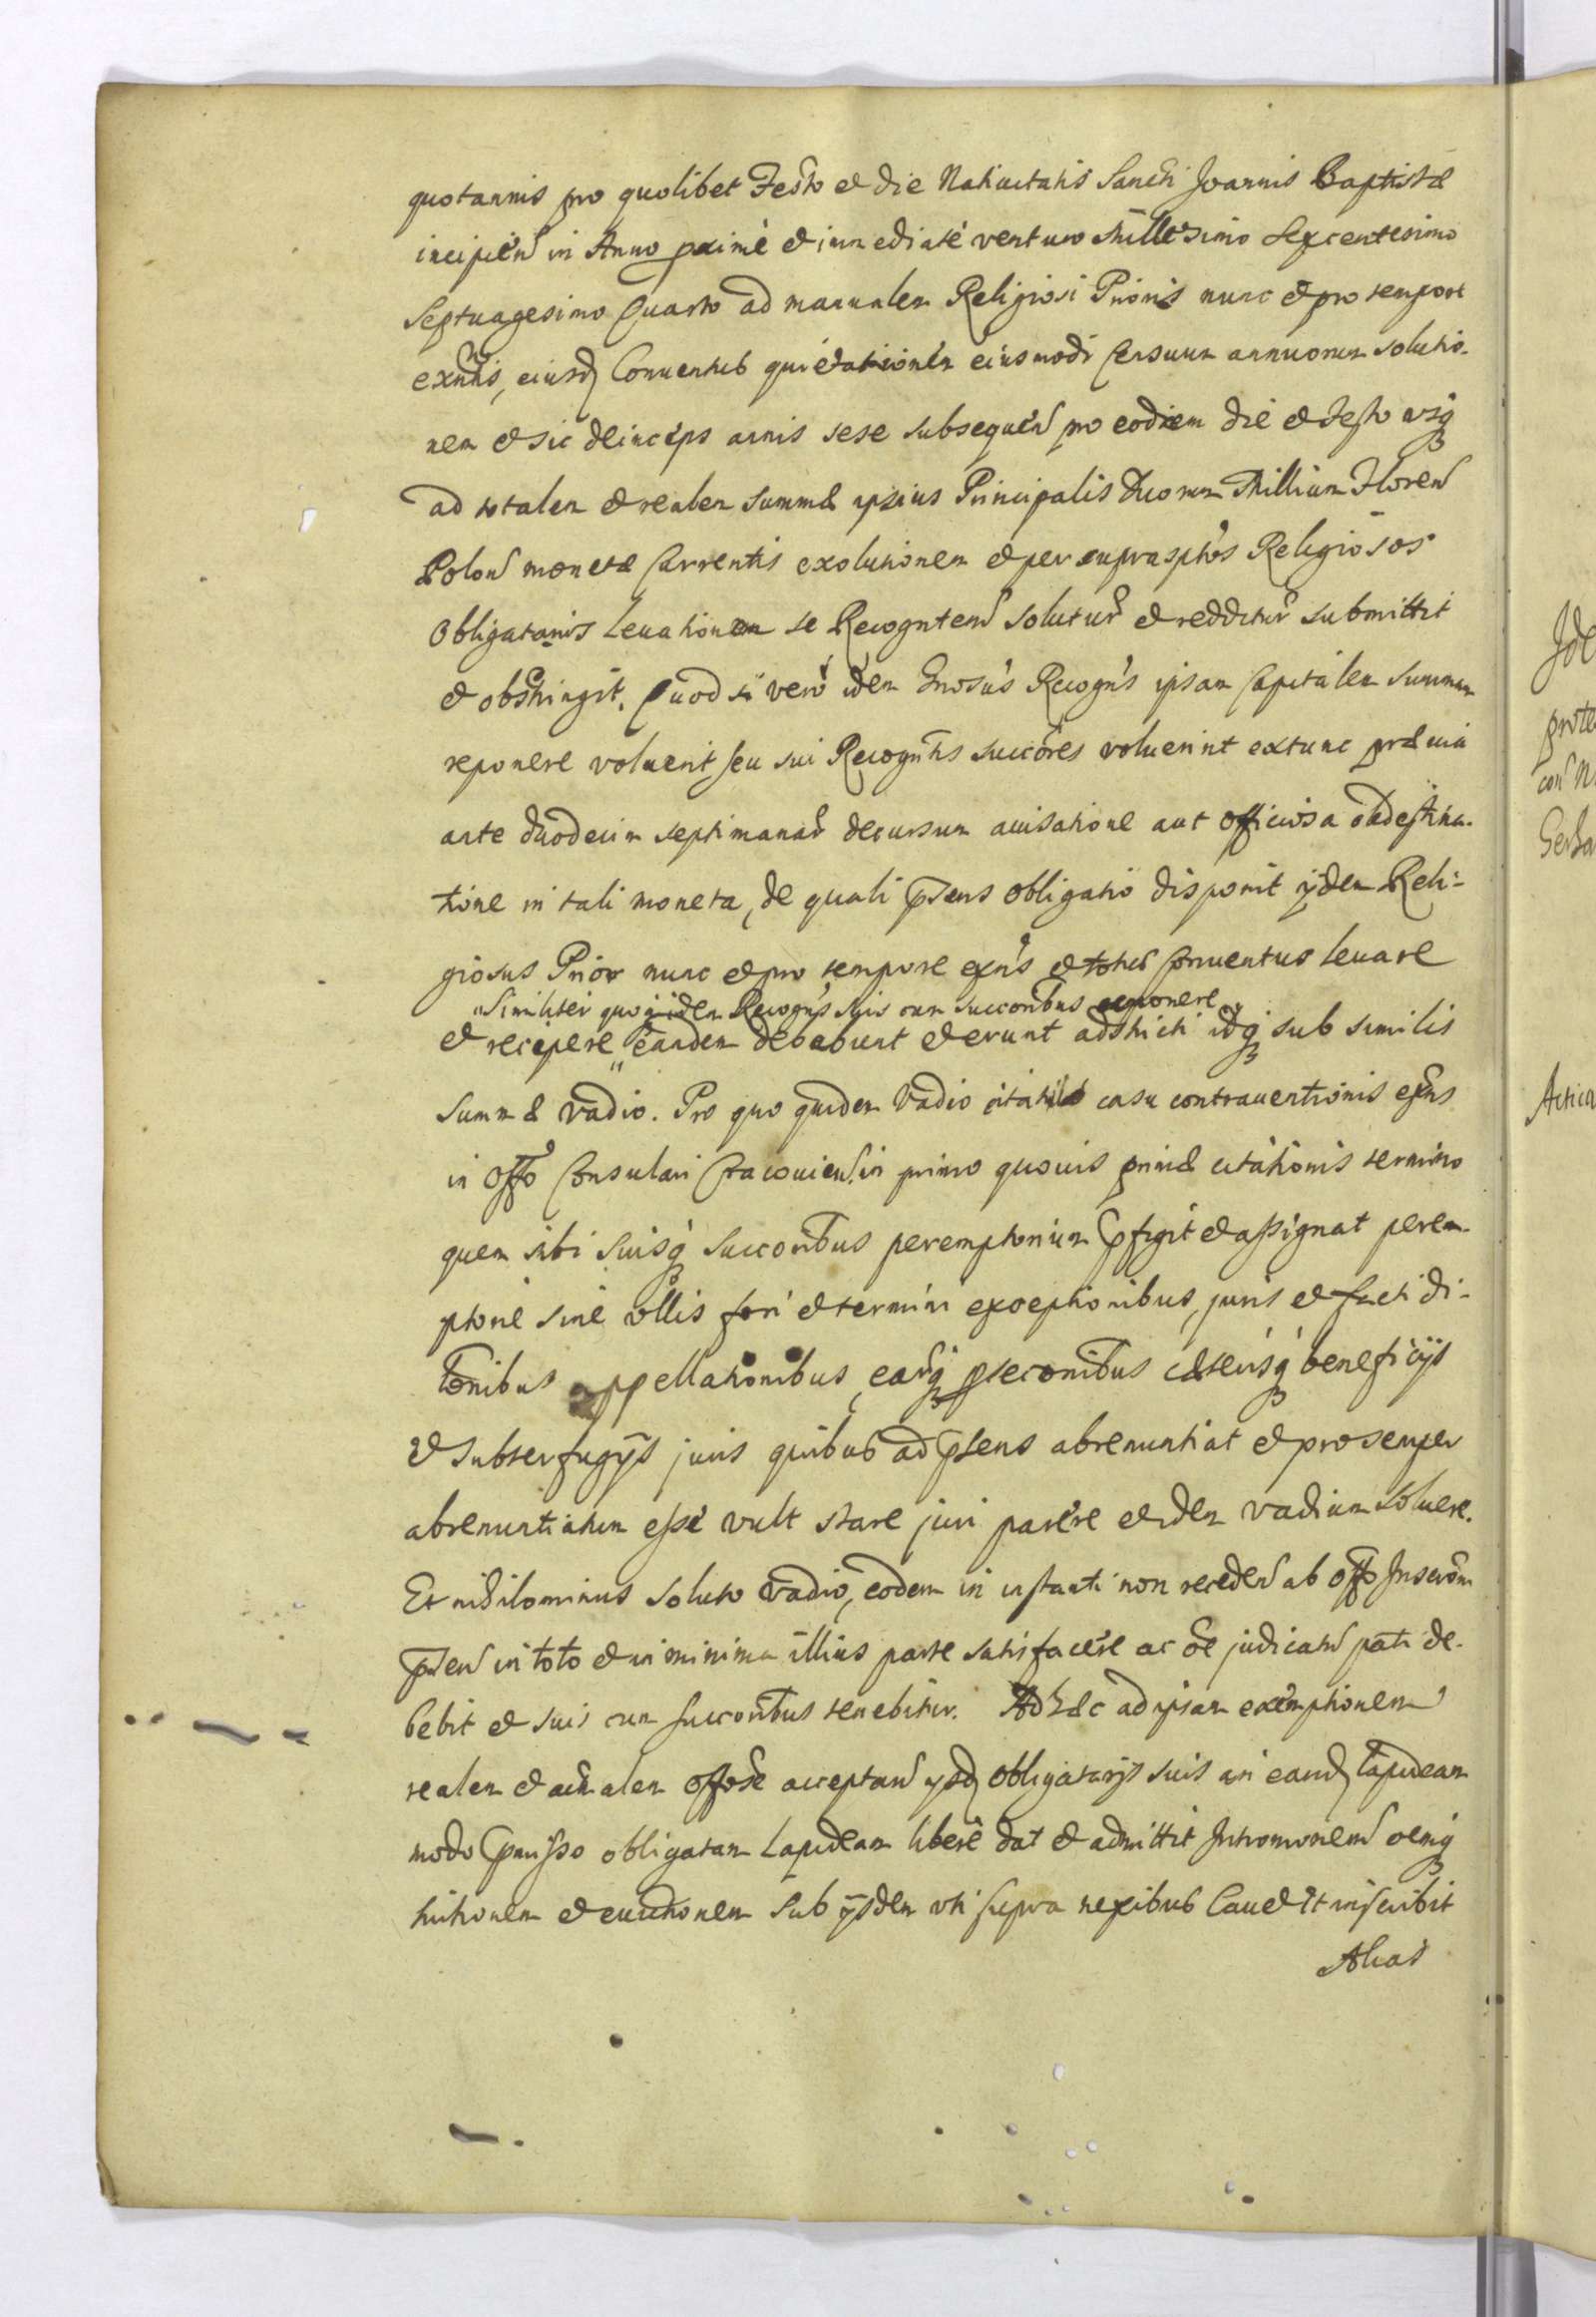 quotannis pro quolibet Festo et die Natiuitatis Sancti Joannis Baptistæ
incipien in Anno proximè et immediatè venturo Millesimo Sexcentesimo
Septuagesimo Quarto ad manualem Religiosi Prioris nunc et pro tempore
exntis, eiusdq Conuentus quietationem eiusmodi Censuum annuorum solutio-
nem et sic deinceps annis sese subsequen pro eodem die et Festo usq
ad totalem et realem summæ ipsius Principalis Duorum Millium Floren
Polon monetæ Currentis exolutionem et per suprasptos Religiosos
Obligatarios leuationem se Recognten solutur et redditur submittit
et obstringit. Quod si verò idem Gnosus Recogns ipsam Capitalem summam
reponere voluerit seu sui Recogntis succores voluerint extunc præuia
ante duodecim septimanar decursum auisatione aut officiosa obdestina-
tione in tali moneta, de quali pñsens obligatio disponit ijdem Reli-
giosus Prior nunc et pro tempore exns et totus Conuentus leuare
"Similiter quoq idem Recogns suis cum succoribus reponere
et recipere "eandem debebunt et erunt adstricti idq sub similis
summæ vadio. Pro quo quidem Vadio citatus casu contrauentionis exns
in offo Consulari Cracouien. in primo quouis primæ citationis termino
quem sibi suisq succoribus peremptorium præfigit et assignat perem-
ptorie sine ullis fori et termini exceptionibus, juris et facti di-
lonibus appellationibus, earq pseconibus cæterisq beneficijs
et subterfugijs juris quibus ad psens abrenuntiat et pro semper
abrenuntiatum esse vult stare juri parere et idem vadium soluere.
Et nihilominus soluto vadio, eodem in instanti non receden ab offo Inscrõni
psen in toto et in minima illius parte satisfacere ac oe judicatu pati de-
bebit et suis cum succoribus tenebitur. Ad hæc ad ipsam exemptionem
realem et actualem offose acceptan ysdq obligatarijs suis in eandq lapideam
modo præmisso obligatam Lapideam liberè dat et admittit Intromonem oemq
tuitionem et euictionem sub ijsdem uti supra nexibus Cauet et inscribit
Alias
Actica